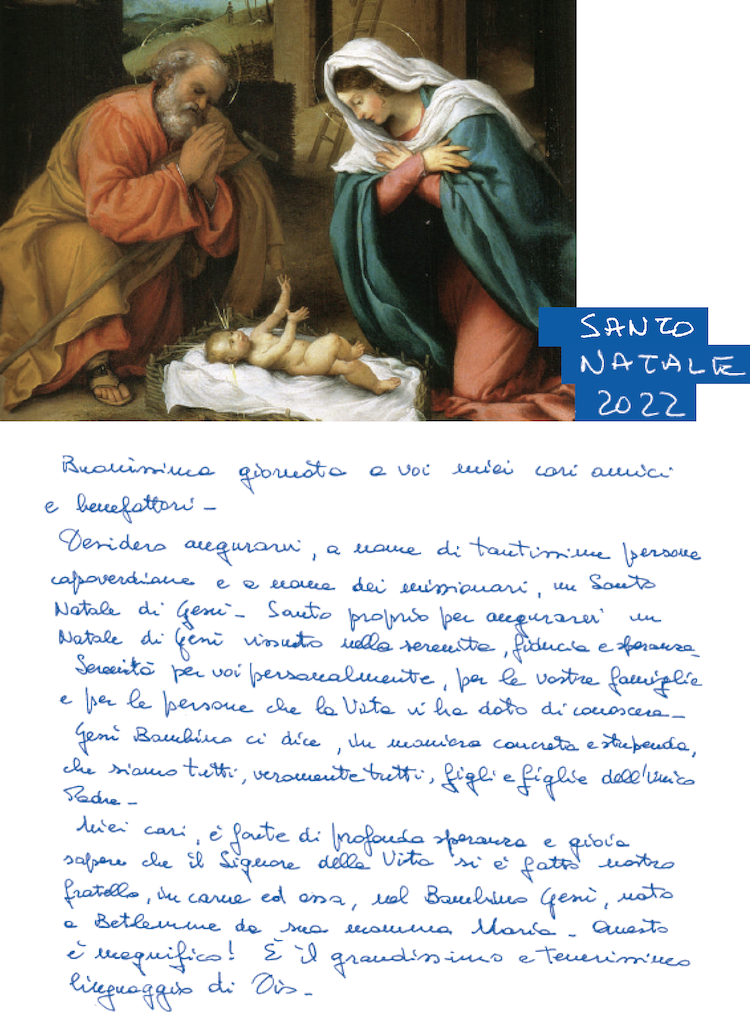 SANTO
NATALE
2022
Buonissima giornata a voi miei cari amici
e benefattori -
Desidero augurarvi, a nome di tantissime persone
capoverdiane e a nome dei missionari, un Santo
Natale di Gesù - Santo proprio per augurarci un
Natale di Gesù vissuto nella serenità, fiducia e speranza -
Serenità per voi personalmente, per le vostre famiglie
e per le persone che la Vita vi ha dato di conoscere -
Gesù Bambino ci dice, in maniera concreta e stupenda,
che siamo tutti, veramente tutti, figli e figlie dell'Unico
Padre -
Miei cari, è fonte di profonda speranza e gioia
sapere che il Signore della Vita si è fatto nostro
fratello, in carne ed ossa, nel Bambino Gesù, nato
a Betlemme da sua mamma Maria - Questo
è magnifico! È il grandissimo e tenerissimo
linguaggio di Dio -